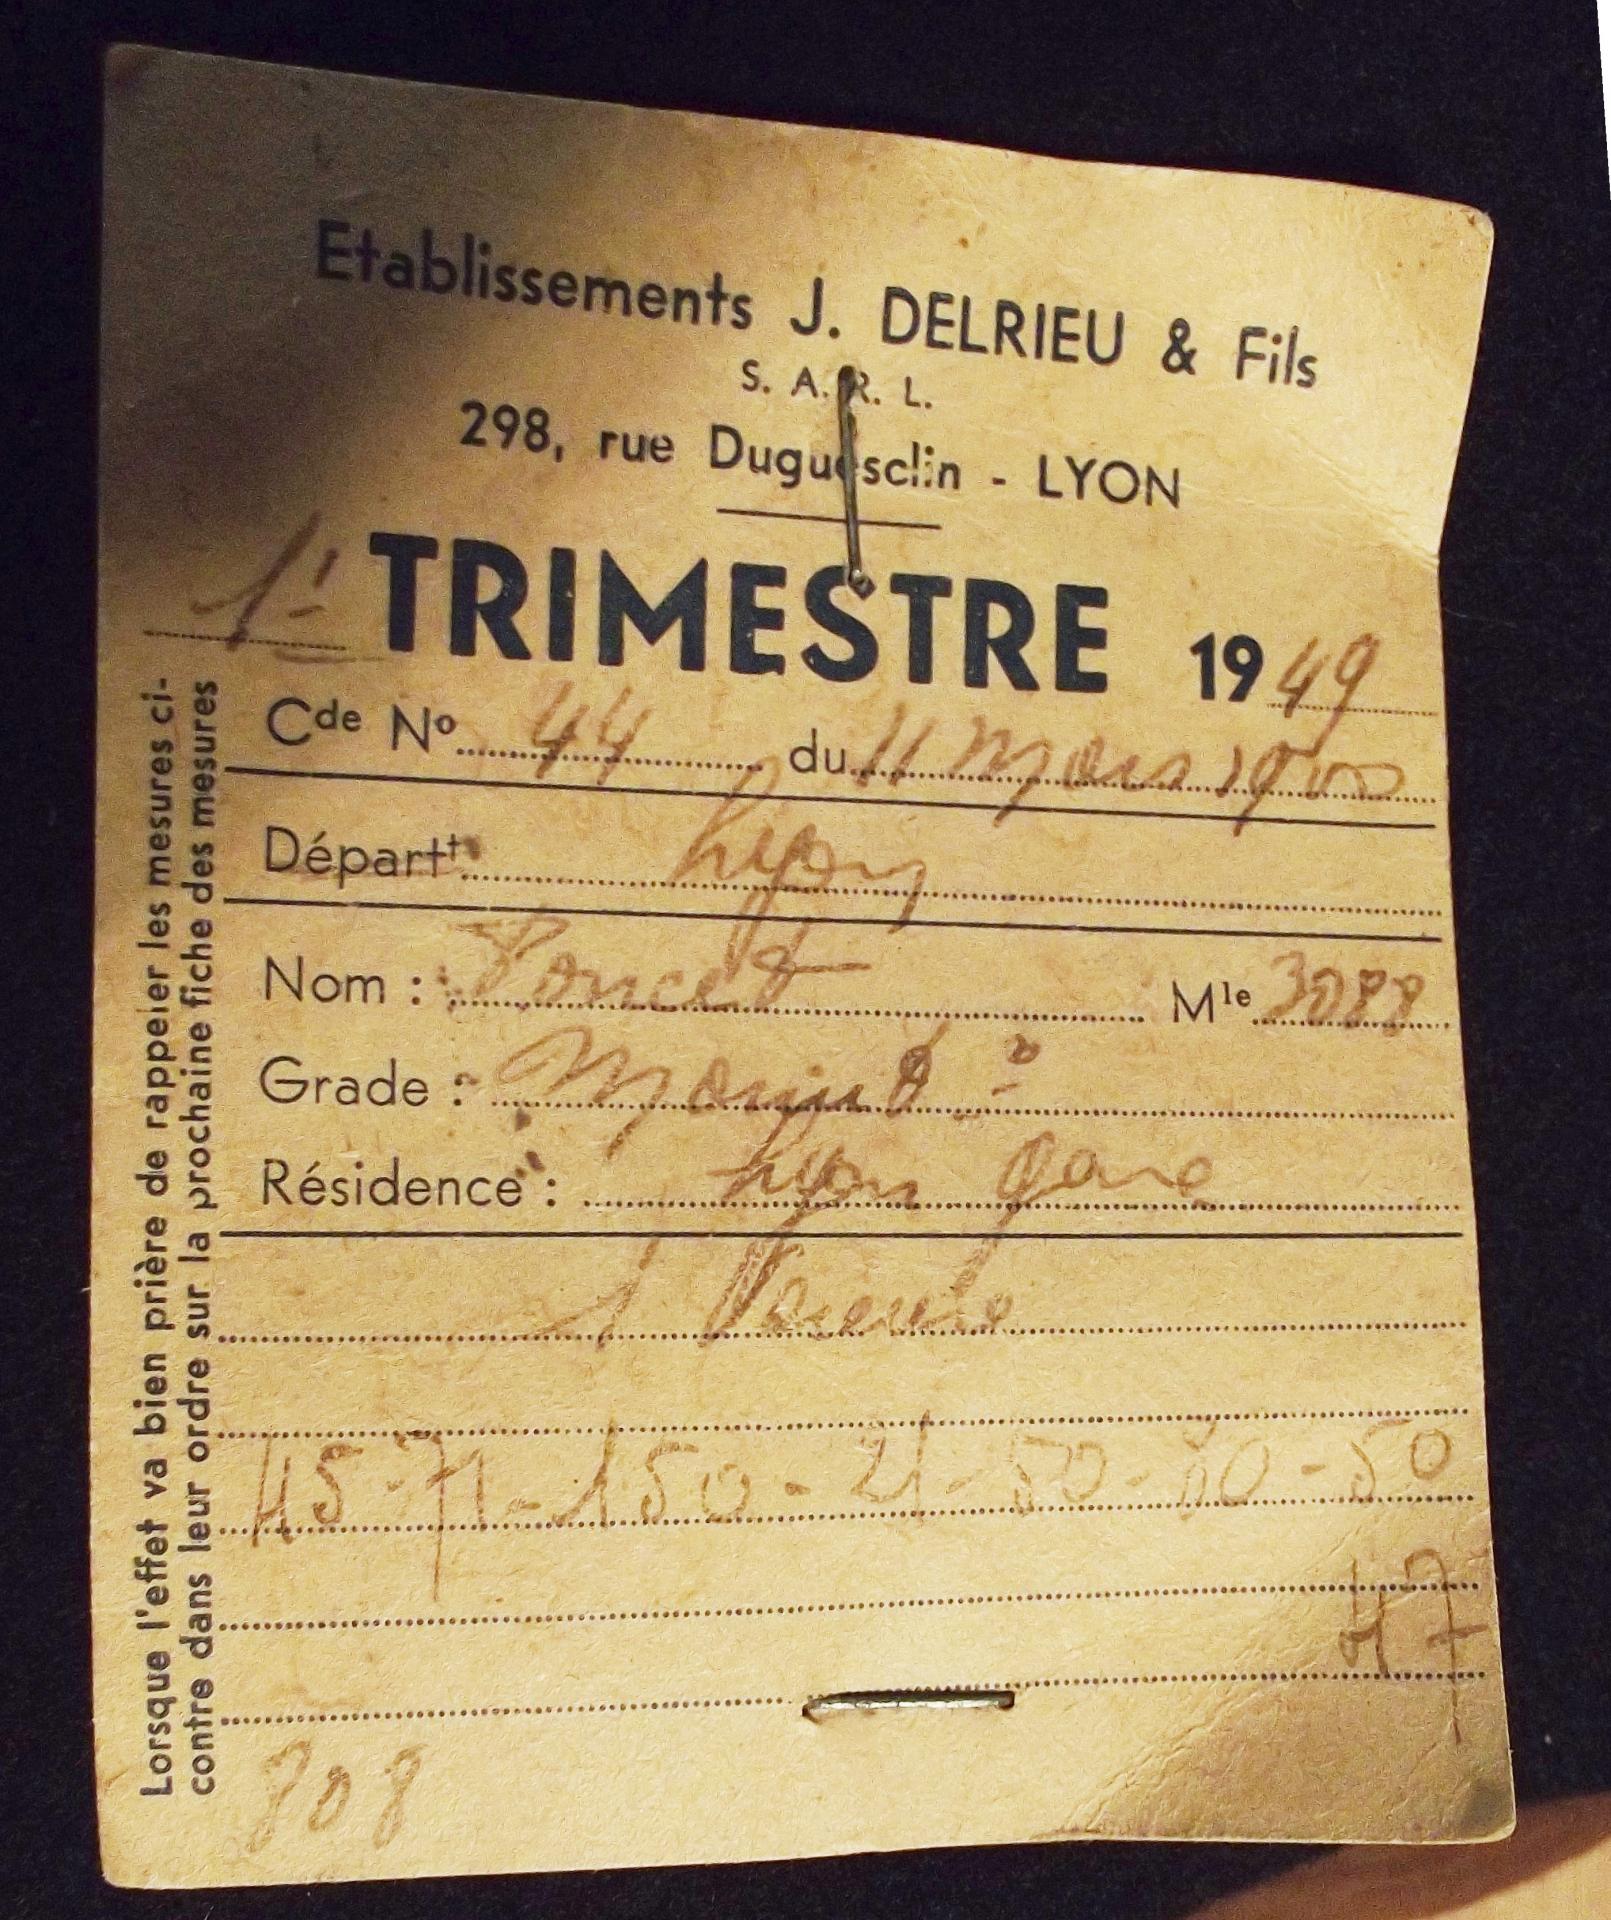 Etablissements J. DELRIEU & Fils
S. A. R. L.
298, rue Duguesclin - LYON
1er TRIMESTRE 1949
Cde No 44 du 11 Mars 1950
Départt Lyon
Nom : Poncet Mle 3088
Grade :
Résidence : Lyon Gare
1
45-71-150-4-50-50-50
47
808
Lorsque l'effet va bien prière de rappeler les mesures ci-
contre dans leur ordre sur la prochaine fiche des mesures